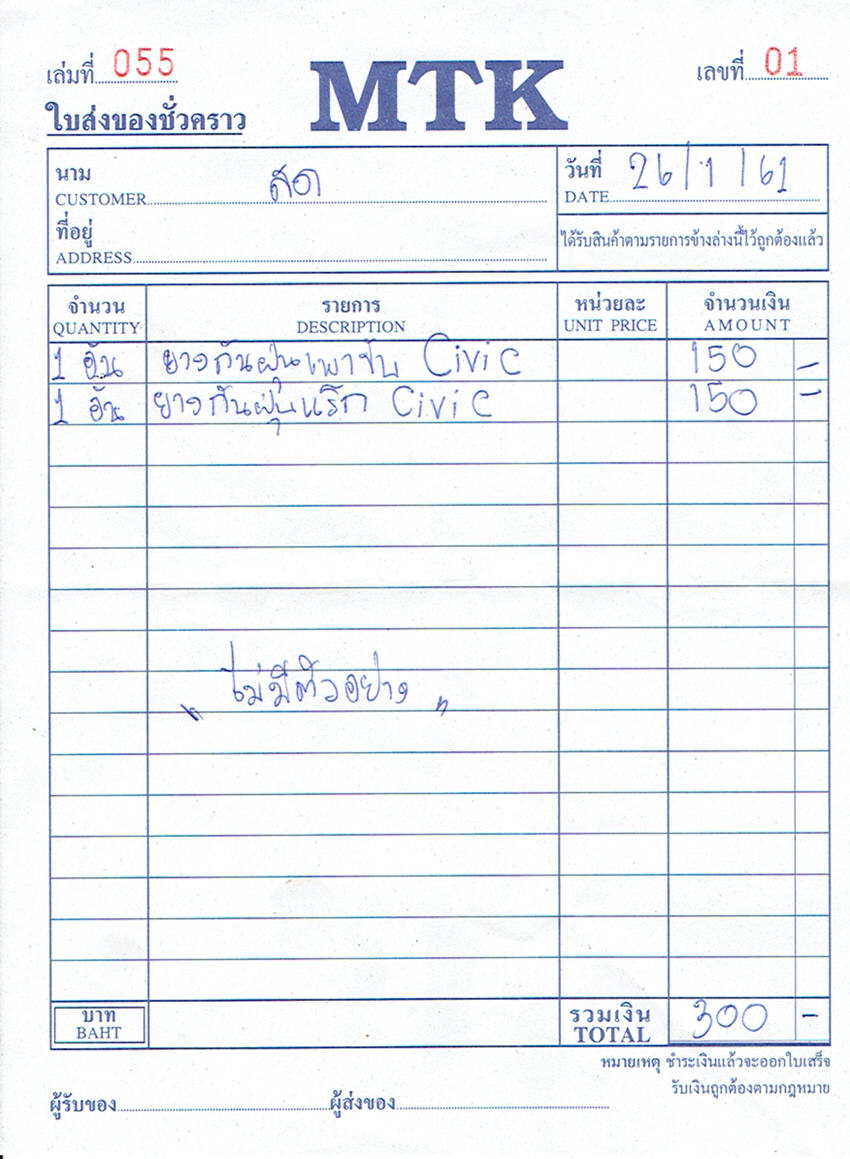 เล่มที่ 055
MTK
เลขที่ 01
ใบส่งของชั่วคราว
นาม
CUSTOMER สด
วันที่
DATE 26/1/61
ที่อยู่
ADDRESS
ได้รับสินค้าตามรายการข้างล่างนี้ไว้ถูกต้องแล้ว
จำนวน รายการ หน่วยละ จำนวนเงิน
QUANTITY DESCRIPTION UNIT PRICE AMOUNT
1 อัน ยางกันฝุ่นเพาขับ Civic 150 –
1 อัน ยางกันฝุ่นแร็ก Civic 150 –
"ไม่มีตัวอย่าง"
บาท รวมเงิน 300 –
BAHT TOTAL
หมายเหตุ ชำระเงินแล้วจะออกใบเสร็จ
รับเงินถูกต้องตามกฎหมาย
ผู้รับของ ผู้ส่งของ